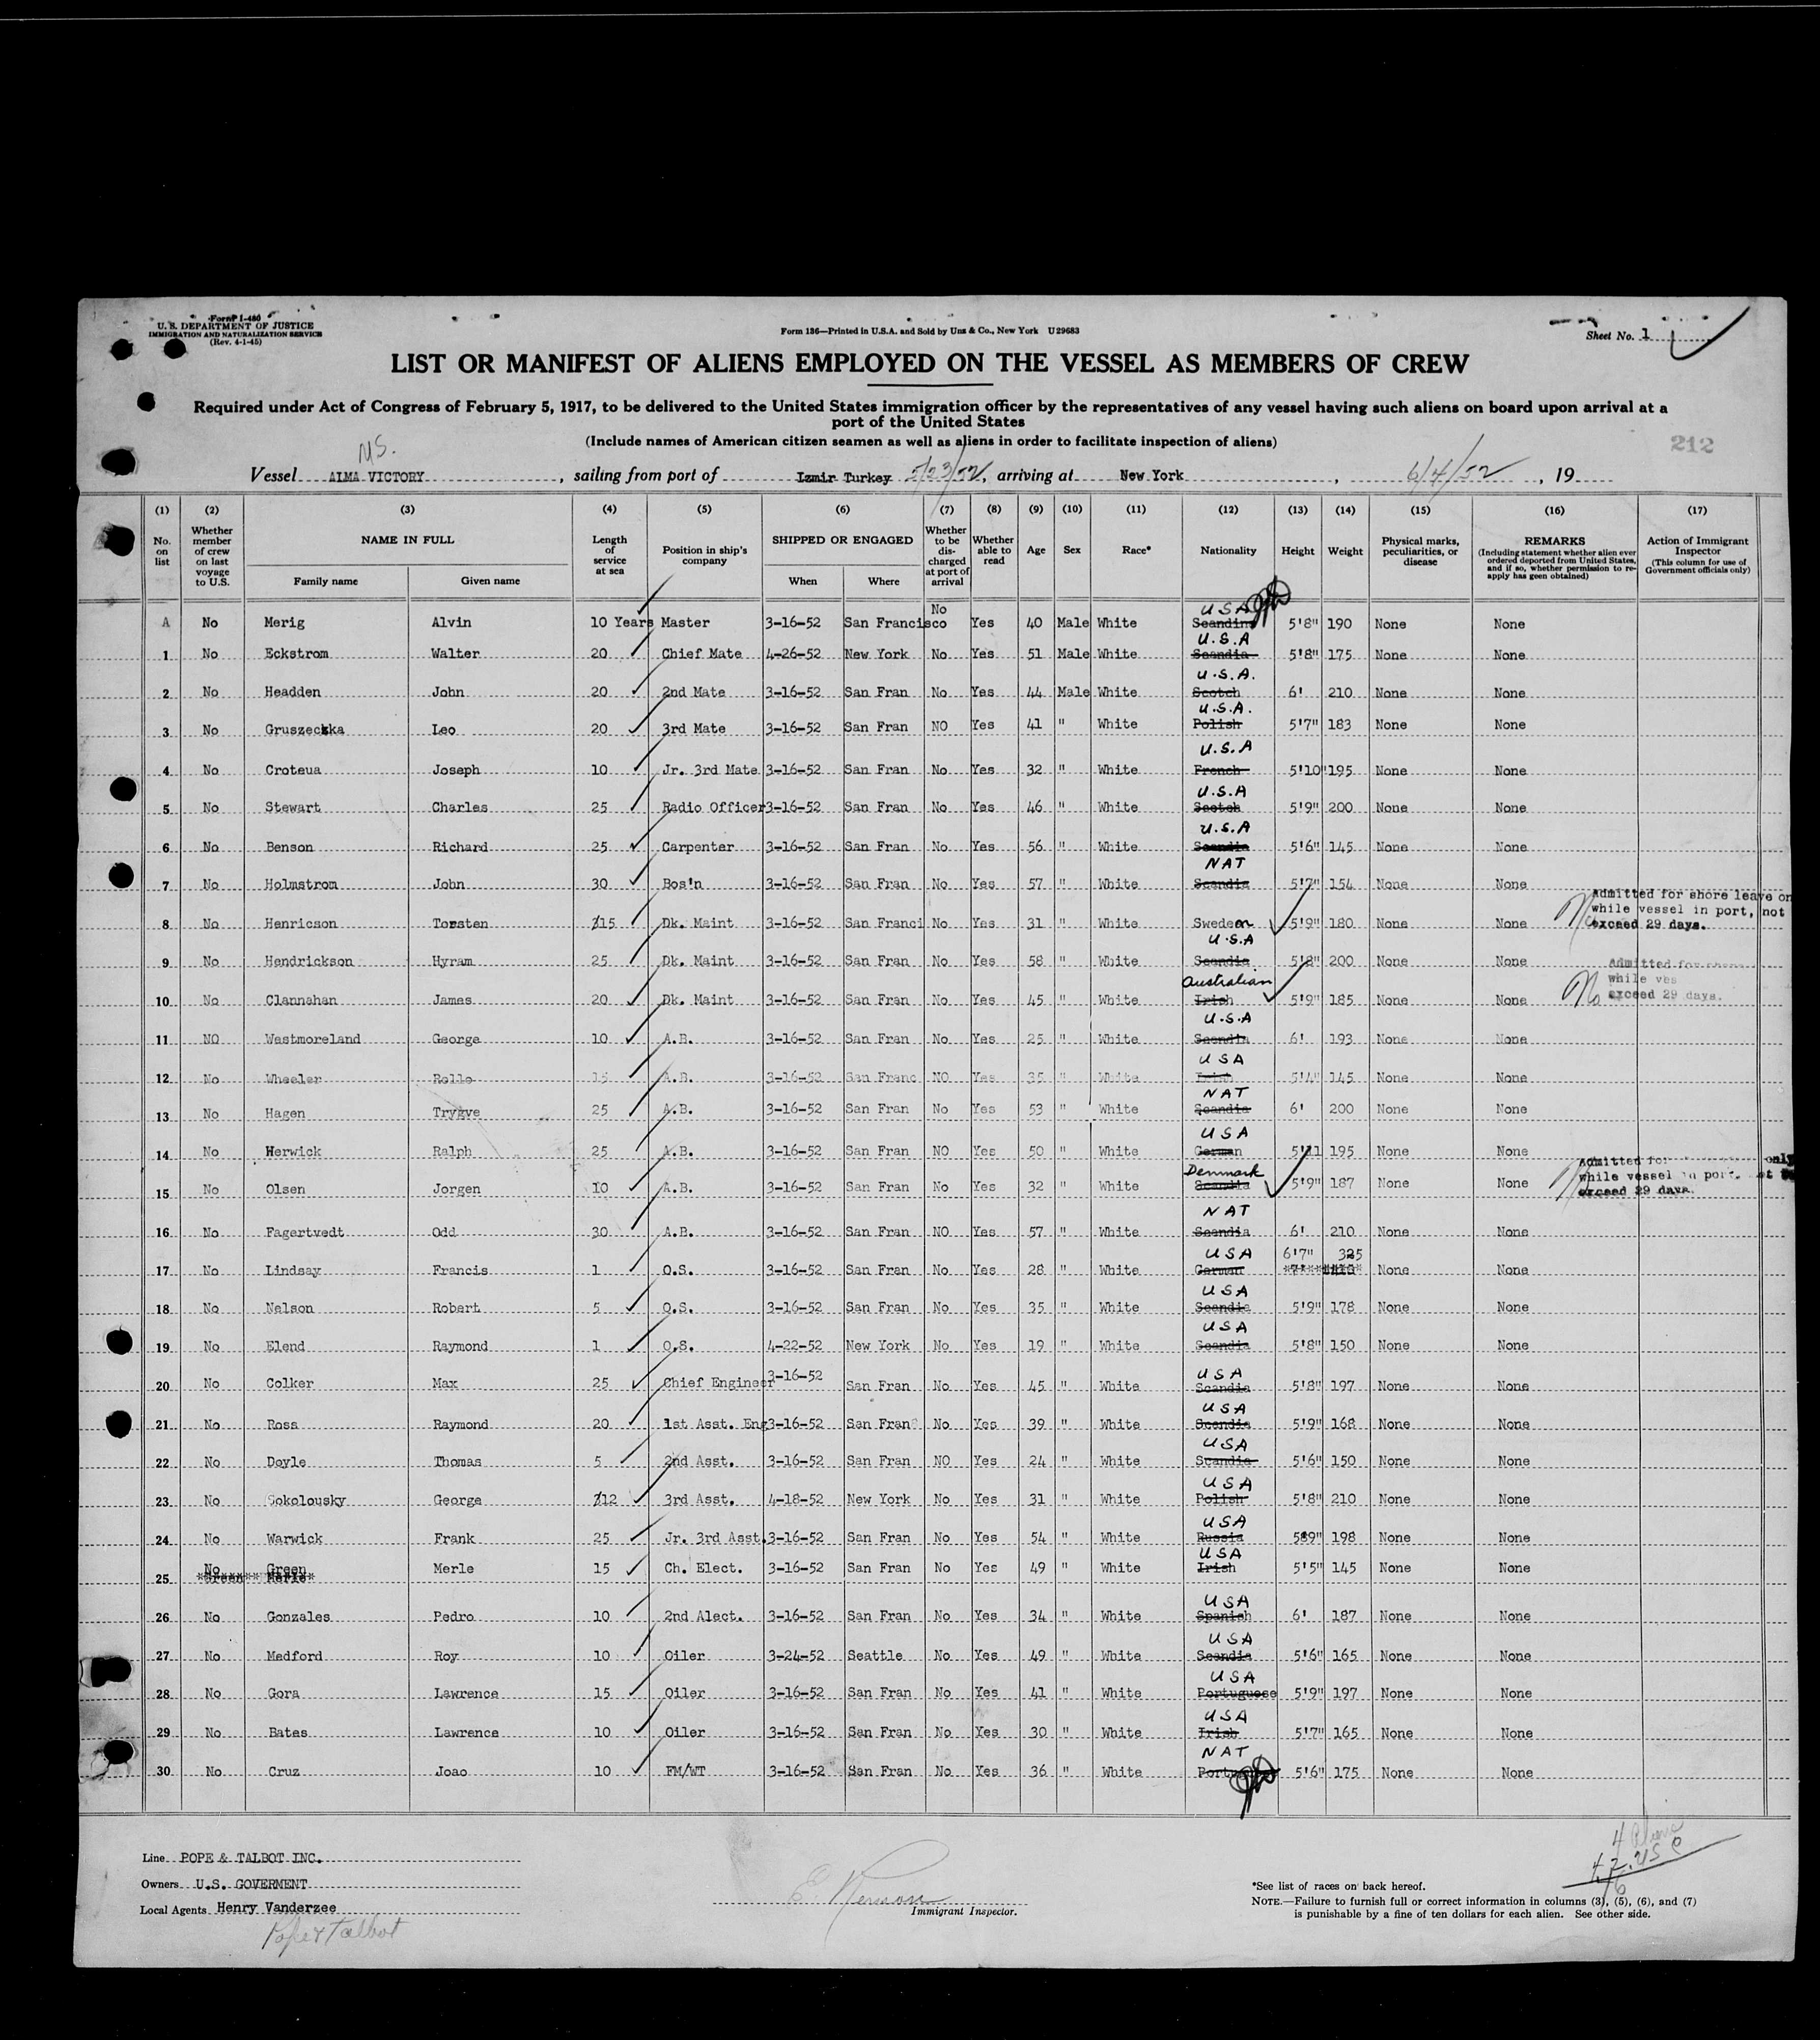 Form I-480
U. S. DEPARTMENT OF JUSTICE
IMMIGRATION AND NATURALIZATION SERVICE
(Rev. 4-1-45)
Form 136—Printed in U.S.A. and Sold by Unz & Co., New York U 29683
Sheet No. 1
LIST OR MANIFEST OF ALIENS EMPLOYED ON THE VESSEL AS MEMBERS OF CREW
Required under Act of Congress of February 5, 1917, to be delivered to the United States immigration officer by the representatives of any vessel having such aliens on board upon arrival at a
port of the United States
(Include names of American citizen seamen as well as aliens in order to facilitate inspection of aliens)
212
MS.
Vessel ALMA VICTORY, sailing from port of Izmir Turkey 5/23/52, arriving at New York, 6/4/52, 19
(1) (2) (3) (4) (5) (6) (7) (8) (9) (10) (11) (12) (13) (14) (15) (16) (17)
No. on list
Whether member of crew on last voyage to U.S.
NAME IN FULL
Family name Given name
Length of service at sea
Position in ship's company
SHIPPED OR ENGAGED
When Where
Whether to be discharged at port of arrival
Whether able to read
Age Sex Race* Nationality Height Weight
Physical marks, peculiarities, or disease
REMARKS
(Including statement whether alien ever ordered deported from United States, and if so, whether permission to re-apply has geen obtained)
Action of Immigrant Inspector
(This column for use of Government officials only)
A No Merig Alvin 10 Years Master 3-16-52 San Francisco No Yes 40 Male White Scandina USA 5'8" 190 None None
1 No Eckstrom Walter 20 Chief Mate 4-26-52 New York No Yes 51 Male White Scandia U.S.A 5'8" 175 None None
2 No Headden John 20 2nd Mate 3-16-52 San Fran No Yes 44 Male White Scotch U.S.A. 6' 210 None None
3 No Gruszeczka Leo 20 3rd Mate 3-16-52 San Fran NO Yes 41 " White Polish U.S.A. 5'7" 183 None None
4 No Croteua Joseph 10 Jr. 3rd Mate 3-16-52 San Fran No Yes 32 " White French U.S.A 5'10" 195 None None
5 No Stewart Charles 25 Radio Officer 3-16-52 San Fran No Yes 46 " White Scotch U.S.A 5'9" 200 None None
6 No Benson Richard 25 Carpenter 3-16-52 San Fran No Yes 56 " White Scandia U.S.A 5'6" 145 None None
7 No Holmstrom John 30 Bos'n 3-16-52 San Fran No Yes 57 " White Scandia NAT 5'7" 154 None None
8 No Henricson Torsten 15 Dk. Maint 3-16-52 San Franci No Yes 31 " White Sweden 5'9" 180 None None
Admitted for shore leave on
while vessel in port, not
exceed 29 days.
9 No Hendrickson Hyram 25 Dk. Maint 3-16-52 San Fran No Yes 58 " White Scandia U.S.A 5'8" 200 None None
10 No Clannahan James 20 Dk. Maint 3-16-52 San Fran No Yes 45 " White Irish Australian 5'9" 185 None None
Admitted for shore
while ves
exceed 29 days.
11 NO Westmoreland George 10 A.B. 3-16-52 San Fran No Yes 25 " White Scandia U.S.A 6' 193 None None
12 No Wheeler Rollo 15 A.B. 3-16-52 San Franc NO Yes 35 " White Irish USA 5'4" 145 None None
13 No Hagen Trygve 25 A.B. 3-16-52 San Fran No Yes 53 " White Scandia NAT 6' 200 None None
14 No Herwick Ralph 25 A.B. 3-16-52 San Fran NO Yes 50 " White German USA 5'11 195 None None
15 No Olsen Jorgen 10 A.B. 3-16-52 San Fran No Yes 32 " White Scandia Denmark 5'9" 187 None None
Admitted for only
while vessel in port
exceed 29 days.
16 No Fagertvedt Odd 30 A.B. 3-16-52 San Fran NO Yes 57 " White Scandia NAT 6' 210 None None
17 No Lindsay Francis 1 O.S. 3-16-52 San Fran No Yes 28 " White German USA 6'7" 325 None None
18 No Nelson Robert 5 O.S. 3-16-52 San Fran No Yes 35 " White Scandia USA 5'9" 178 None None
19 No Elend Raymond 1 O.S. 4-22-52 New York No Yes 19 " White Scandia USA 5'8" 150 None None
20 No Colker Max 25 Chief Engineer 3-16-52 San Fran No Yes 45 " White Scandia USA 5'8" 197 None None
21 No Ross Raymond 20 1st Asst. Eng 3-16-52 San Fran No Yes 39 " White Scandia USA 5'9" 168 None None
22 No Doyle Thomas 5 2nd Asst. 3-16-52 San Fran NO Yes 24 " White Scandia USA 5'6" 150 None None
23 No Sokolousky George 12 3rd Asst. 4-18-52 New York No Yes 31 " White Polish USA 5'8" 210 None None
24 No Warwick Frank 25 Jr. 3rd Asst. 3-16-52 San Fran No Yes 54 " White Russia USA 589" 198 None None
25 No Green Merle 15 Ch. Elect. 3-16-52 San Fran No Yes 49 " White Irish USA 5'5" 145 None None
26 No Gonzales Pedro 10 2nd Alect. 3-16-52 San Fran No Yes 34 " White Spanish USA 6' 187 None None
27 No Medford Roy 10 Oiler 3-24-52 Seattle No Yes 49 " White Scandia USA 5'6" 165 None None
28 No Gora Lawrence 15 Oiler 3-16-52 San Fran No Yes 41 " White Portuguese USA 5'9" 197 None None
29 No Bates Lawrence 10 Oiler 3-16-52 San Fran No Yes 30 " White Irish USA 5'7" 165 None None
30 No Cruz Joao 10 FM/WT 3-16-52 San Fran No Yes 36 " White NAT 5'6" 175 None None
4 Aliens
42 USC
46
Line POPE & TALBOT INC.
Owners U.S. GOVERMENT
Local Agents Henry Vanderzee
Pope & Talbot
Immigrant Inspector.
*See list of races on back hereof.
NOTE.—Failure to furnish full or correct information in columns (3), (5), (6), and (7)
is punishable by a fine of ten dollars for each alien. See other side.